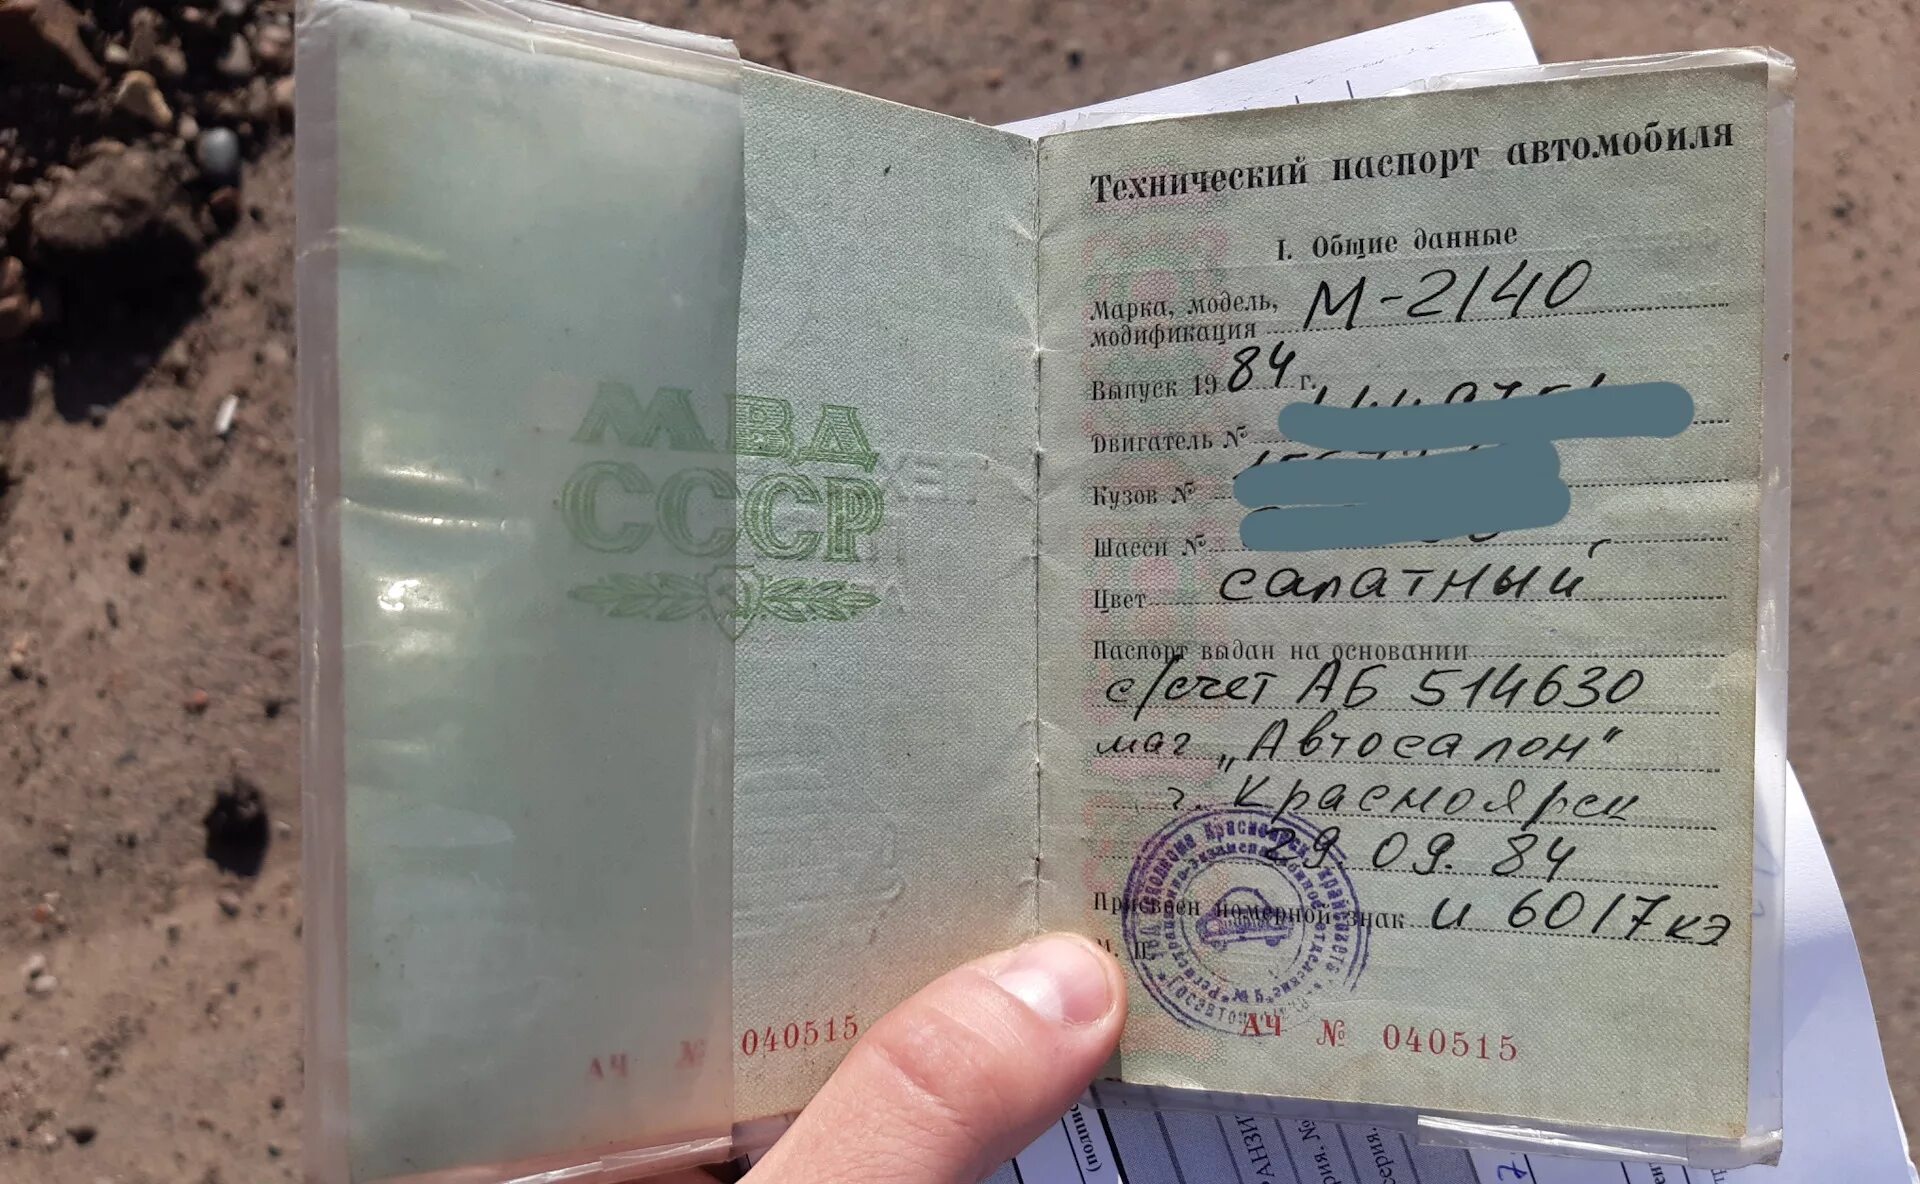 МВД
СССР
АЧ № 040515
Технический паспорт автомобиля
I. Общие данные
Марка, модель, М-2140
модификация
Выпуск 1984 г.
Двигатель №
Кузов №
Шасси №
Цвет салатный
Паспорт выдан на основании
с/счет АБ 514630
маг „Автосалон"
г. Красноярск
29.09.84
Присвоен номерной знак и 6017кэ
М. П.
АЧ № 040515